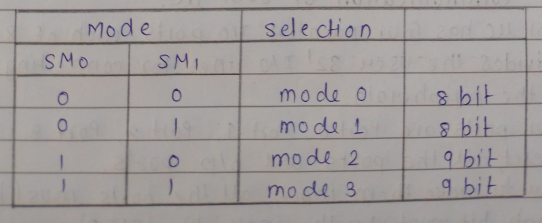 Mode selection
SM0 SM1
0 0 mode 0 8 bit
0 1 mode 1 8 bit
1 0 mode 2 9 bit
1 1 mode 3 9 bit